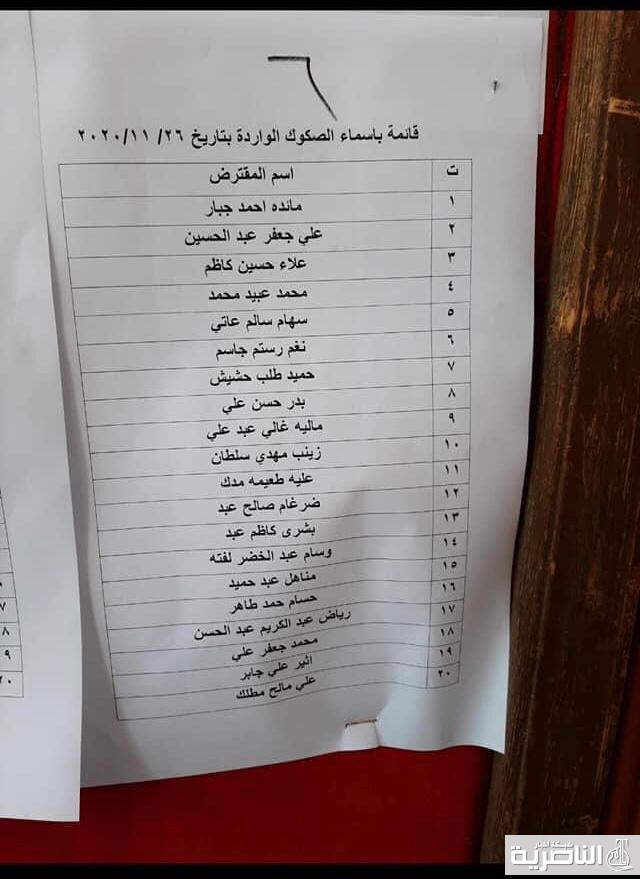 ٦
قائمة باسماء الصكوك الواردة بتاريخ ٢٦/ ١١/ ٢٠٢٠
ت اسم المقترض
١ مائده احمد جبار
٢ علي جعفر عبد الحسين
٣ علاء حسين كاظم
٤ محمد عبيد محمد
٥ سهام سالم عاتي
٦ نغم رستم جاسم
٧ حميد طلب حشيش
٨ بدر حسن علي
٩ ماليه غالي عبد علي
١٠ زينب مهدي سلطان
١١ عليه طعيمه مدك
١٢ ضرغام صالح عبد
١٣ بشرى كاظم عبد
١٤ وسام عبد الخضر لفته
١٥ مناهل عبد حميد
١٦ حسام حمد طاهر
١٧ رياض عبد الكريم عبد الحسن
١٨ محمد جعفر علي
١٩ اثير علي جابر
٢٠ علي مالح مطلك
٧
٨
٩
٢٠
شبكة أخبار
الناصرية